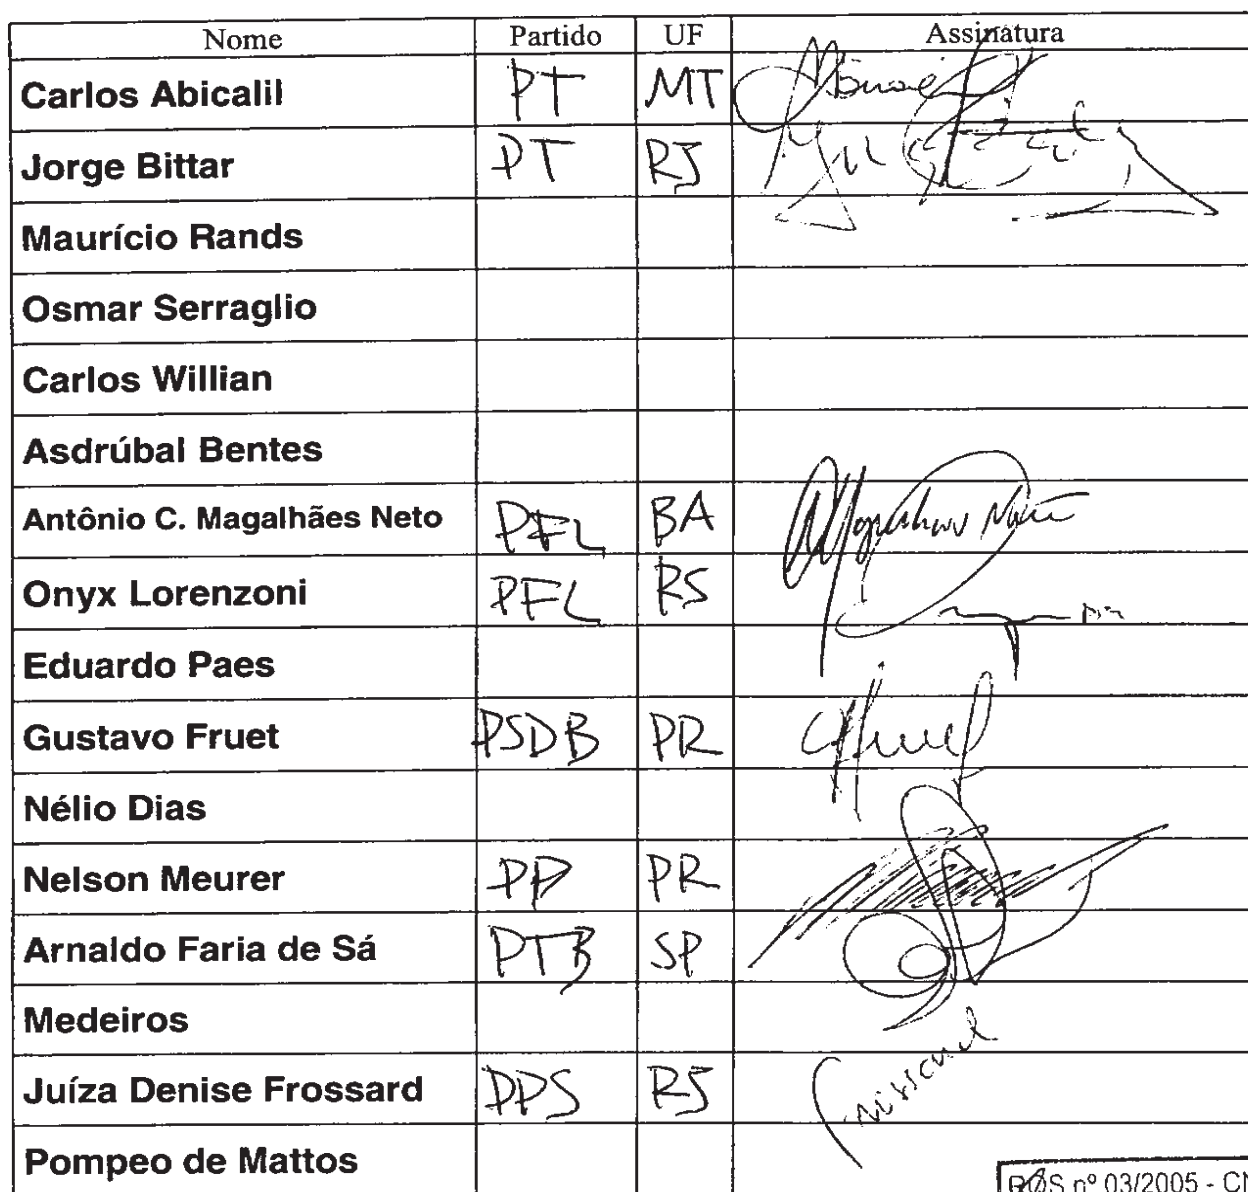 Nome Partido UF Assinatura
Carlos Abicalil PT MT
Jorge Bittar PT RJ
Maurício Rands
Osmar Serraglio
Carlos Willian
Asdrúbal Bentes
Antônio C. Magalhães Neto PFL BA
Onyx Lorenzoni PFL RS
Eduardo Paes
Gustavo Fruet PSDB PR
Nélio Dias
Nelson Meurer PP PR
Arnaldo Faria de Sá PTB SP
Medeiros
Juíza Denise Frossard PPS RJ
Pompeo de Mattos
nº 03/2005 - CN